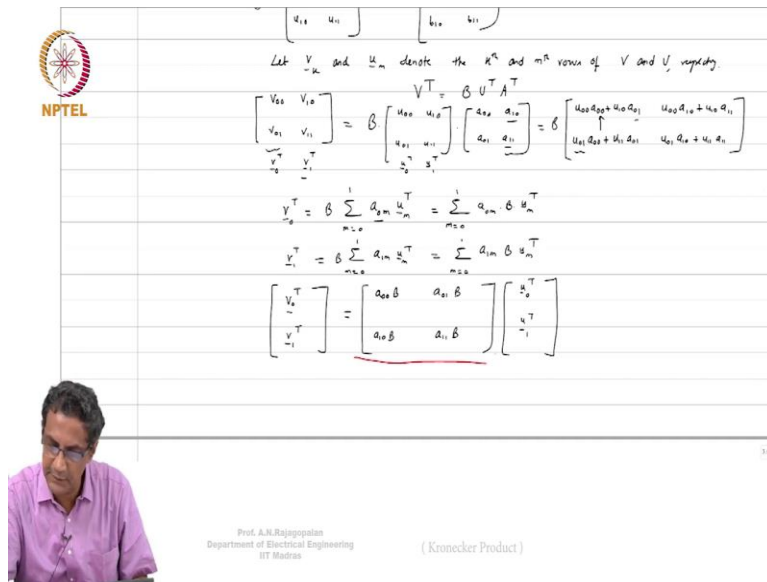 [ u₁₀ u₁₁ ] [ b₁₀ b₁₁ ]
Let v_k and u_m denote the kᵗʰ and mᵗʰ rows of V and U,
NPTEL
Vᵀ = B Uᵀ Aᵀ
[ v₀₀ v₁₀ ; v₀₁ v₁₁ ] = B · [ u₀₀ u₁₀ ; u₀₁ u₁₁ ] · [ a₀₀ a₁₀ ; a₀₁ a₁₁ ] = B [ u₀₀a₀₀ + u₁₀a₀₁ u₀₀a₁₀ + u₁₀a₁₁ ; u₀₁a₀₀ + u₁₁a₀₁ u₀₁a₁₀ + u₁₁a₁₁ ]
v₀ᵀ v₁ᵀ u₀ᵀ u₁ᵀ
v₀ᵀ = B Σ_{m=0}^{1} a₀ₘ uₘᵀ = Σ_{m=0}^{1} a₀ₘ · B uₘᵀ
v₁ᵀ = B Σ_{m=0}^{1} a₁ₘ uₘᵀ = Σ_{m=0}^{1} a₁ₘ B uₘᵀ
[ v₀ᵀ ; v₁ᵀ ] = [ a₀₀B a₀₁B ; a₁₀B a₁₁B ] [ u₀ᵀ ; u₁ᵀ ]
Prof. A.N.Rajagopalan
Department of Electrical Engineering
IIT Madras
( Kronecker Product )